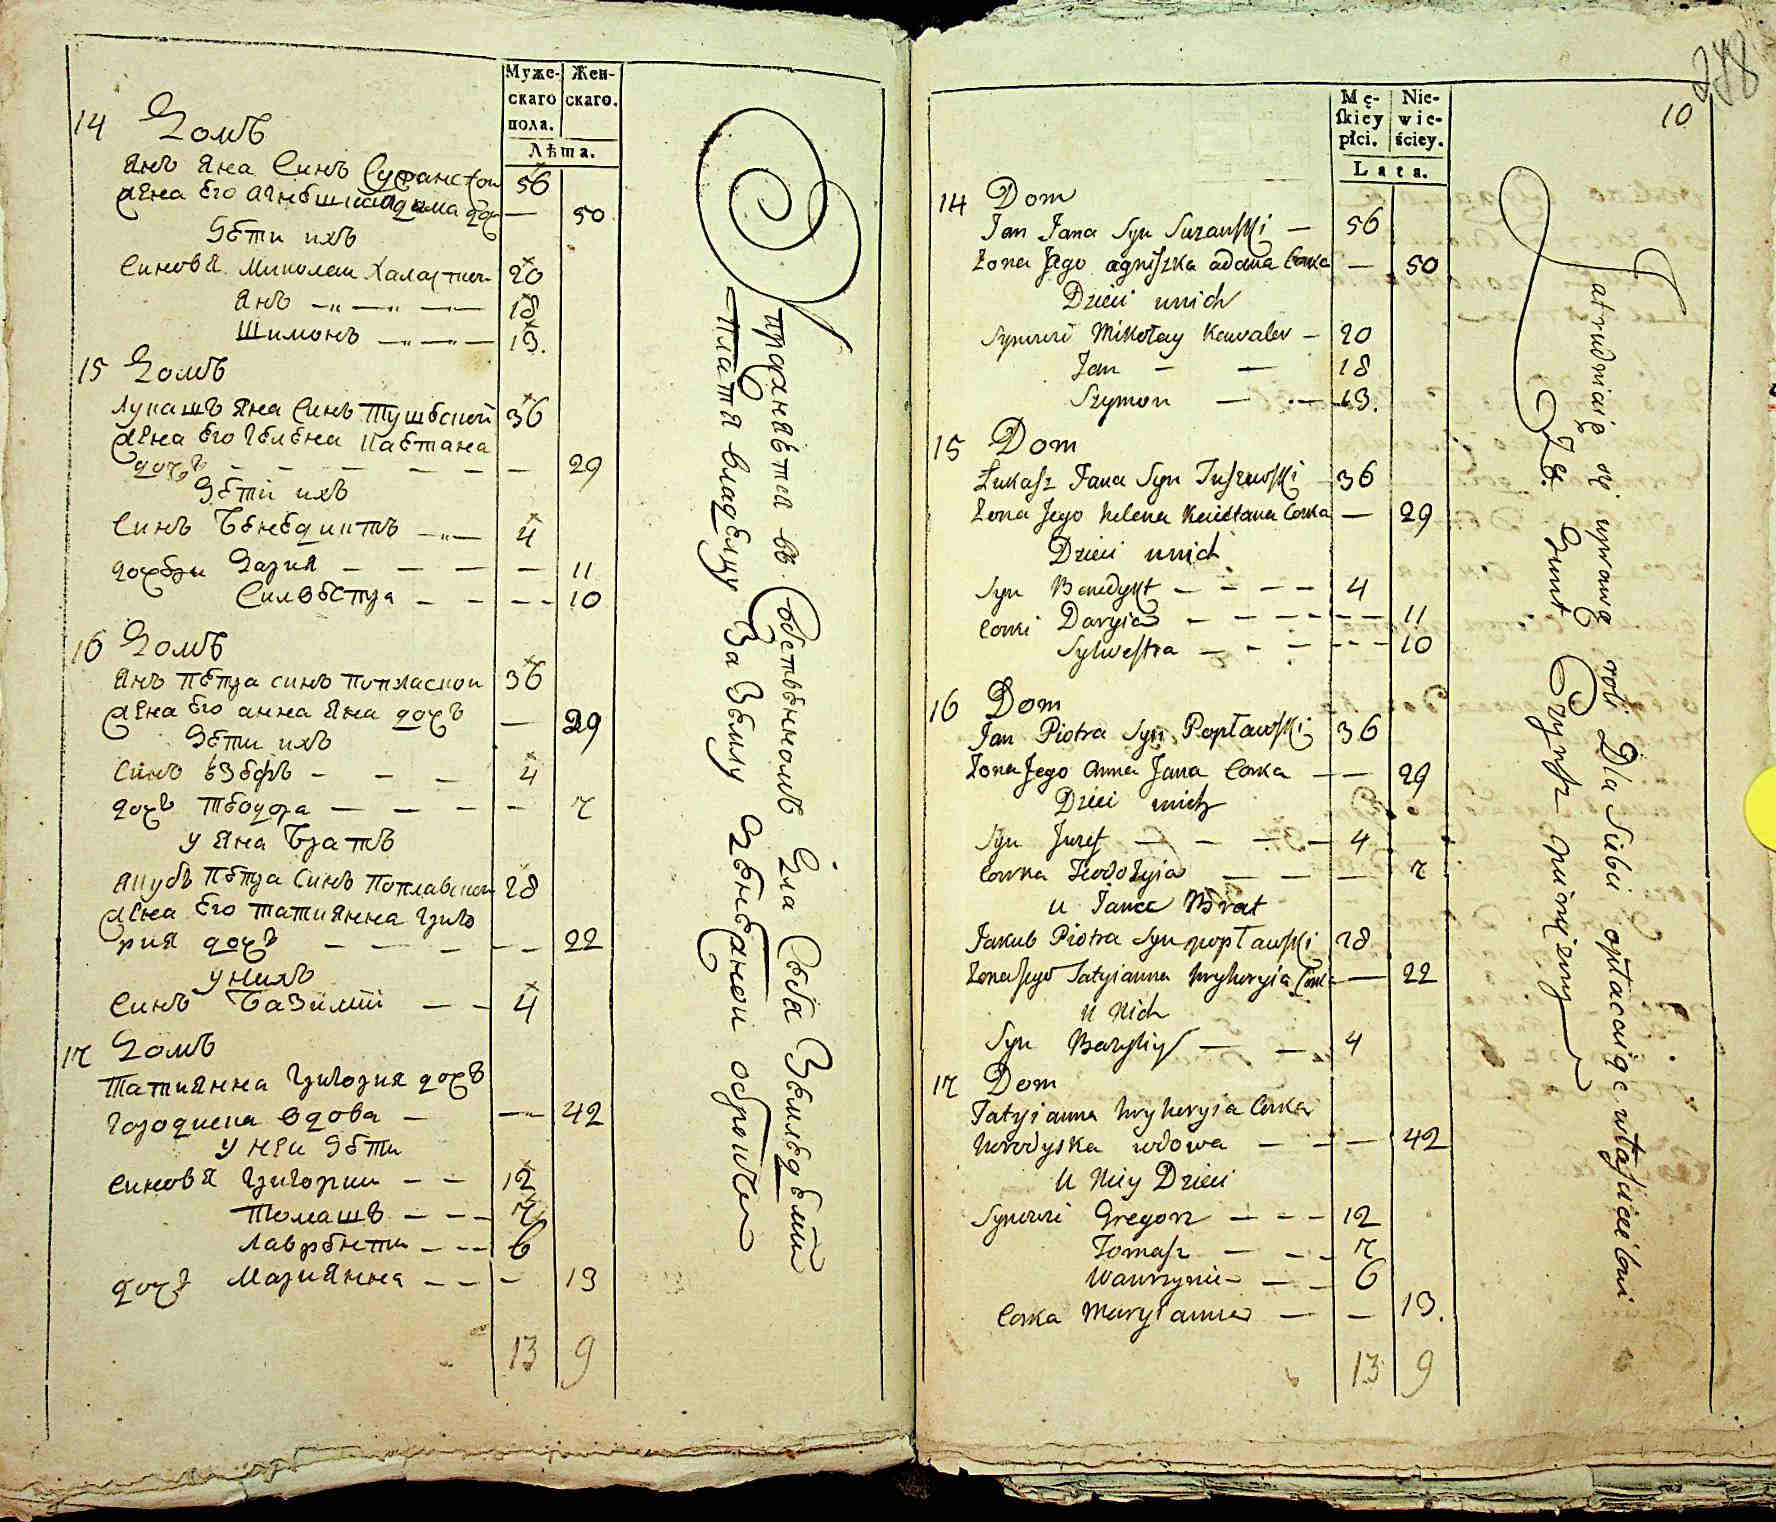 Муже-
скаго
пола.
Жен-
скаго.
Лѣта.
14 Домъ
Янъ Яна Синъ 56
Жена Его 50
Дѣти ихъ
Синовя Миколаи 20
Янъ 18
Шимонъ 13.
15 Домъ
Лукашъ Яна Синъ 36
Жена Его Гелена Каетана
дочъ 29
Дѣти ихъ
Синъ Бенедиктъ 4
дочери Дария 11
Силвестра 10
16 Домъ
Янъ Петра синъ 36
Жена Его анна Яна дочъ 29
Дѣти ихъ
Синъ 4
дочъ 7
у Яна Братъ
Якубъ Петра Синъ Поплавской 28
Жена Его Татиянна Григо
рия дочъ 22
у нихъ
Синъ Базилий 4
17 Домъ
Татиянна Григория дочъ
вдова 42
у неи Дѣти
Синовя Григории 12
Томашъ 7
Лаврентии 6
дочъ Мариянна 13
13 9
в Собственномъ Для Себя
Платя владелцу За Землю
10
Mę-
ſkiey
płci.
Nie-
wie-
ściey.
Lata.
14 Dom
Jan Jana Syn 56
Zona Jego agniſzka adama Corka 50
Dzieci unich
Synowi Mikołay Kawaler 20
Jan 18
Szymon 13.
15 Dom
Łukasz Jana Syn Tuſzewſki 36
Zona Jego helena Kaietana Corka 29
Dzieci unich
Syn Benedykt 4
Corki Daryia 11
Sylweſtra 10
16 Dom
Jan Piotra Syn Popławſki 36
Zona Jego anna Jana Corka 29
Dzieci unich
Syn Juzef 4
Corka 7
u Jana Brat
Jakub Piotra Syn popławſki 28
Zona Jego Tatyianna hryhoryia Cork 22
u Nich
Syn Bazyliy 4
17 Dom
Tatyianna hryhoryia Corka
horodyska wdowa 42
u Niey Dzieci
Synowi Gregorz 12
Tomaſz 7
Wawrzyniec 6
Corka Maryianna 13.
13 9
Zatrudniaią się uprawą roli Dla Siebie opłacaiąc właścicielowi
Za Grunt Czynſz